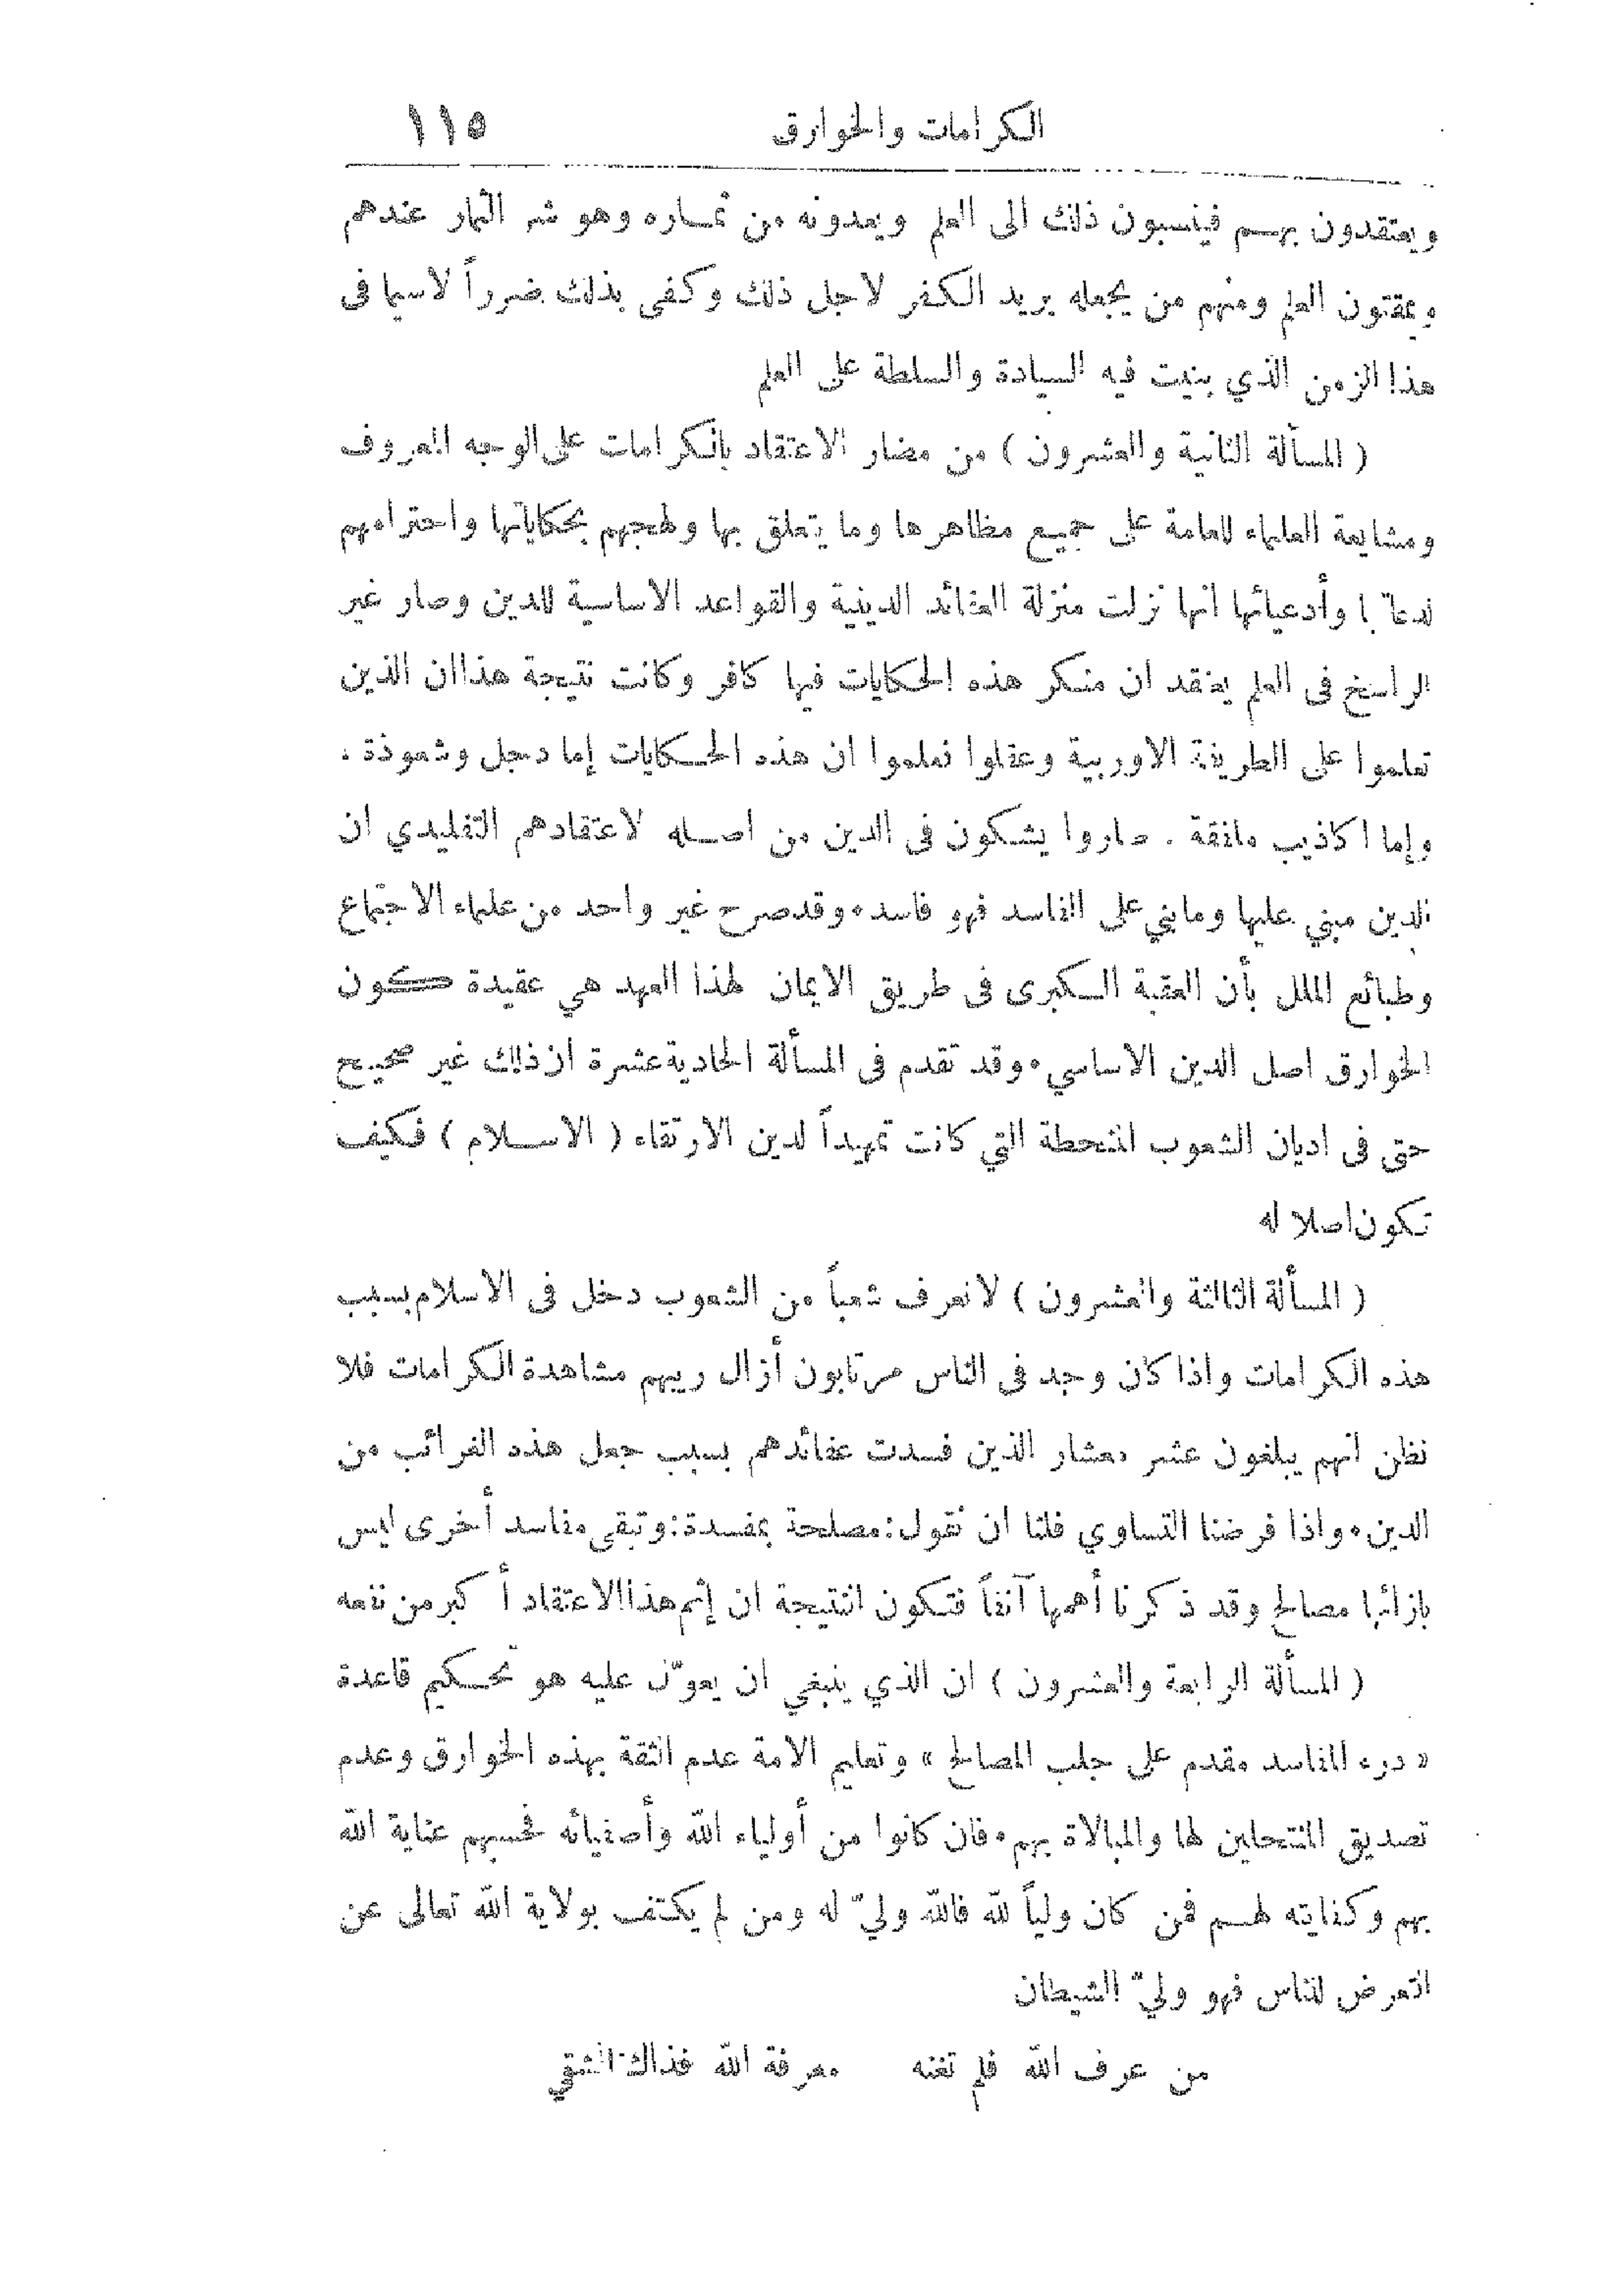 الكرامات والخوارق ١١٥
ويعتقدون بهم فينسبون ذلك الى العلم ويعدونه من ثماره وهو شر الثمار عندهم
ويمقتون العلم ومنهم من يجعله بريد الكفر لاجل ذلك وكفى بذلك ضرراً لاسيما فى
هذا الزمن الذي بنيت فيه السيادة والسلطة على العلم
( المسألة الثانية والعشرون ) من مضار الاعتقاد بالكرامات على الوجه المعروف
ومشايعة العلماء للعامة على جميع مظاهرها وما يتعلق بها ولهجهم بحكاياتها واحترامهم
وأدعيائها انها نزلت منزلة العقائد الدينية والقواعد الاساسية للدين وصار غير
الراسخ فى العلم يعتقد ان منكر هذه الحكايات فيها كافر وكانت نتيجة هذا ان الذين
تعلموا على الطريقة الاوربية وعقلوا فعلموا ان هذه الحكايات إما دجل وشعوذة .
وإما اكاذيب ملفقة . صاروا يشكون فى الدين من اصله لاعتقادهم التقليدي ان
الدين مبني عليها وما بني على الفاسد فهو فاسد • وقد صرح غير واحد من علماء الاجتماع
وطبائع الملل بأن العقبة الكبرى فى طريق الايمان لهذا العهد هي عقيدة كون
الخوارق اصل الدين الاساسي • وقد تقدم فى المسألة الحادية عشرة ان ذلك غير صحيح
حتى فى اديان الشعوب المنحطة التي كانت تمهيداً لدين الارتقاء ( الاسلام ) فكيف
تكون اصلا له
( المسألة الثالثة والعشرون ) لا نعرف شعباً من الشعوب دخل فى الاسلام بسبب
هذه الكرامات واذا كان وجد فى الناس مرتابون أزال ريبهم مشاهدة الكرامات فلا
نظن انهم يبلغون عشر معشار الذين فسدت عقائدهم بسبب جعل هذه الغرائب من
الدين • واذا فرضنا التساوي فلنا ان نقول : مصلحة بمفسدة : وتبقى مفاسد أخرى ليس
بازائها مصالح وقد ذكرنا أهمها آنفاً فتكون النتيجة ان إثم هذا الاعتقاد أكبر من نفعه
( المسألة الرابعة والعشرون ) ان الذي ينبغي ان يعوّل عليه هو تحكيم قاعدة
« درء المفاسد مقدم على جلب المصالح » وتعليم الامة عدم الثقة بهذه الخوارق وعدم
تصديق المنتحلين لها والمبالاة بهم • فان كانوا من أولياء الله وأصفيائه فحسبهم عناية الله
بهم وكفايته لهم فمن كان ولياً لله فالله وليّ له ومن لم يكتف بولاية الله تعالى عن
التعرض للناس فهو وليّ الشيطان
من عرف الله فلم تغنه معرفة الله فذاك الشقي